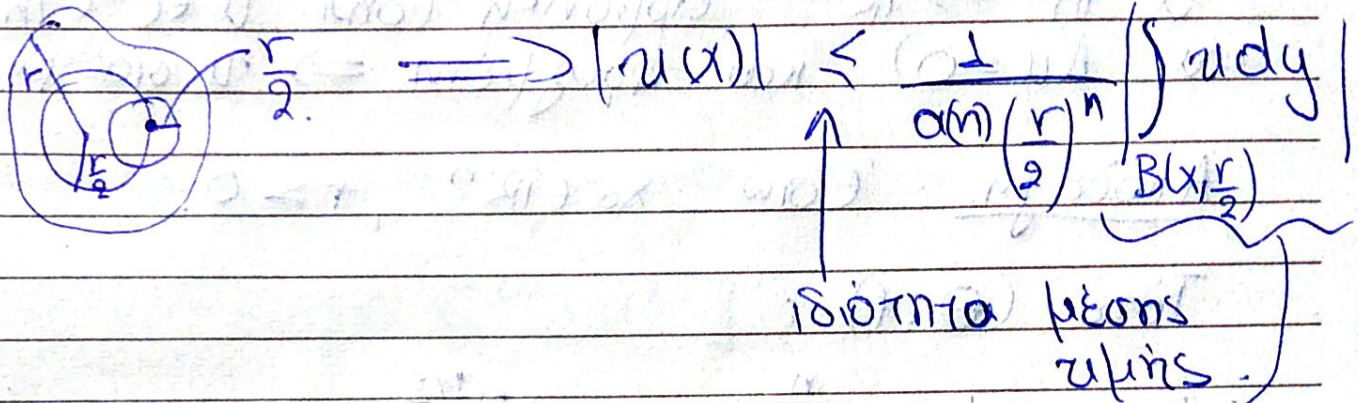 r r/2 r/2. ⟹ |u(x)| ≤ 1/(α(n)(r/2)^n) |∫_{B(x,r/2)} u dy|
ιδιότητα μέσης
τιμής.